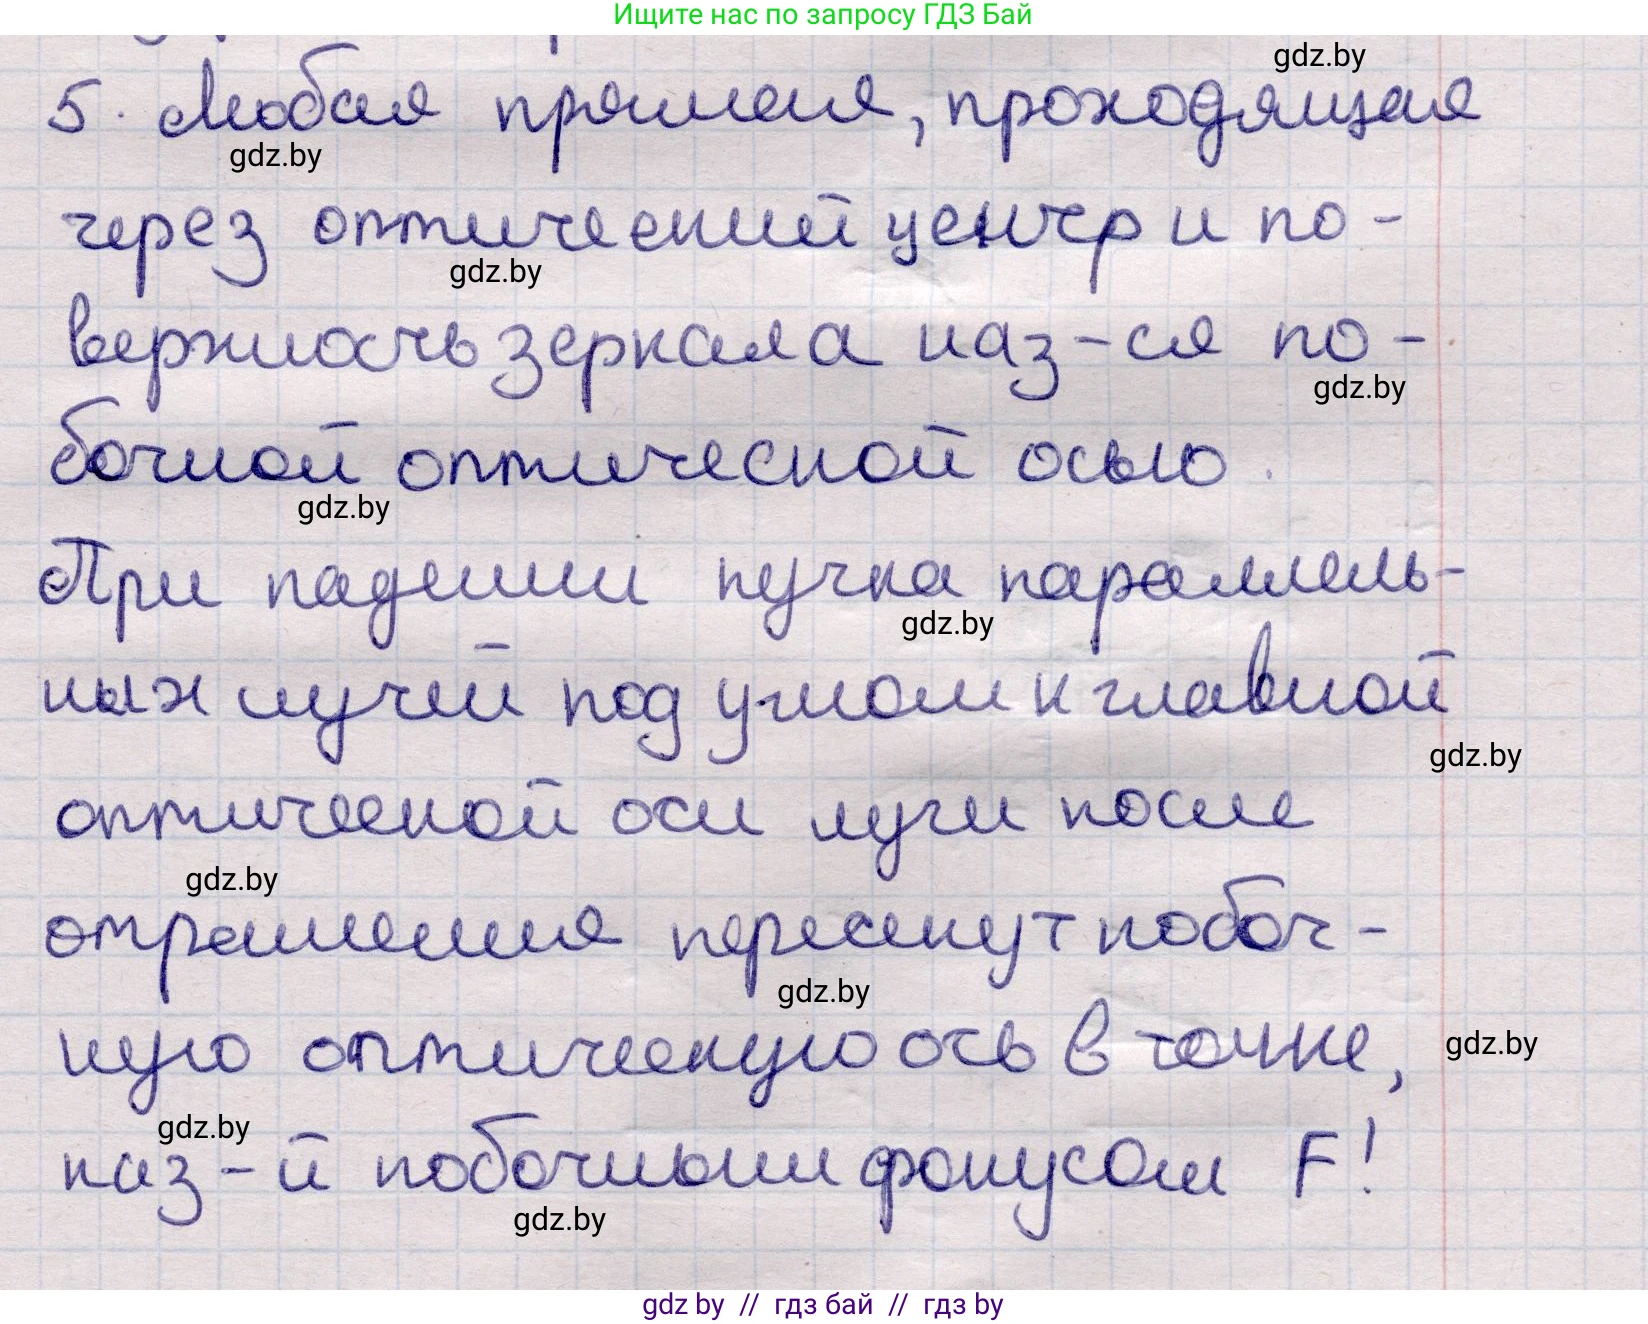 Ищите нас по запросу ГДЗ Бай
gdz.by
5. Любая прямая, проходящая
gdz.by
через оптический центр и по-
gdz.by
верхность зеркала наз-ся по-
gdz.by
бочной оптической осью.
gdz.by
При падении пучка параллель-
gdz.by
ных лучей под углом к главной
gdz.by
оптической оси лучи после
gdz.by
отражения пересекут побоч-
gdz.by
ную оптическую ось в точке,
gdz.by
gdz.by
наз-й побочным фокусом F!
gdz.by
gdz by // гдз бай // гдз by